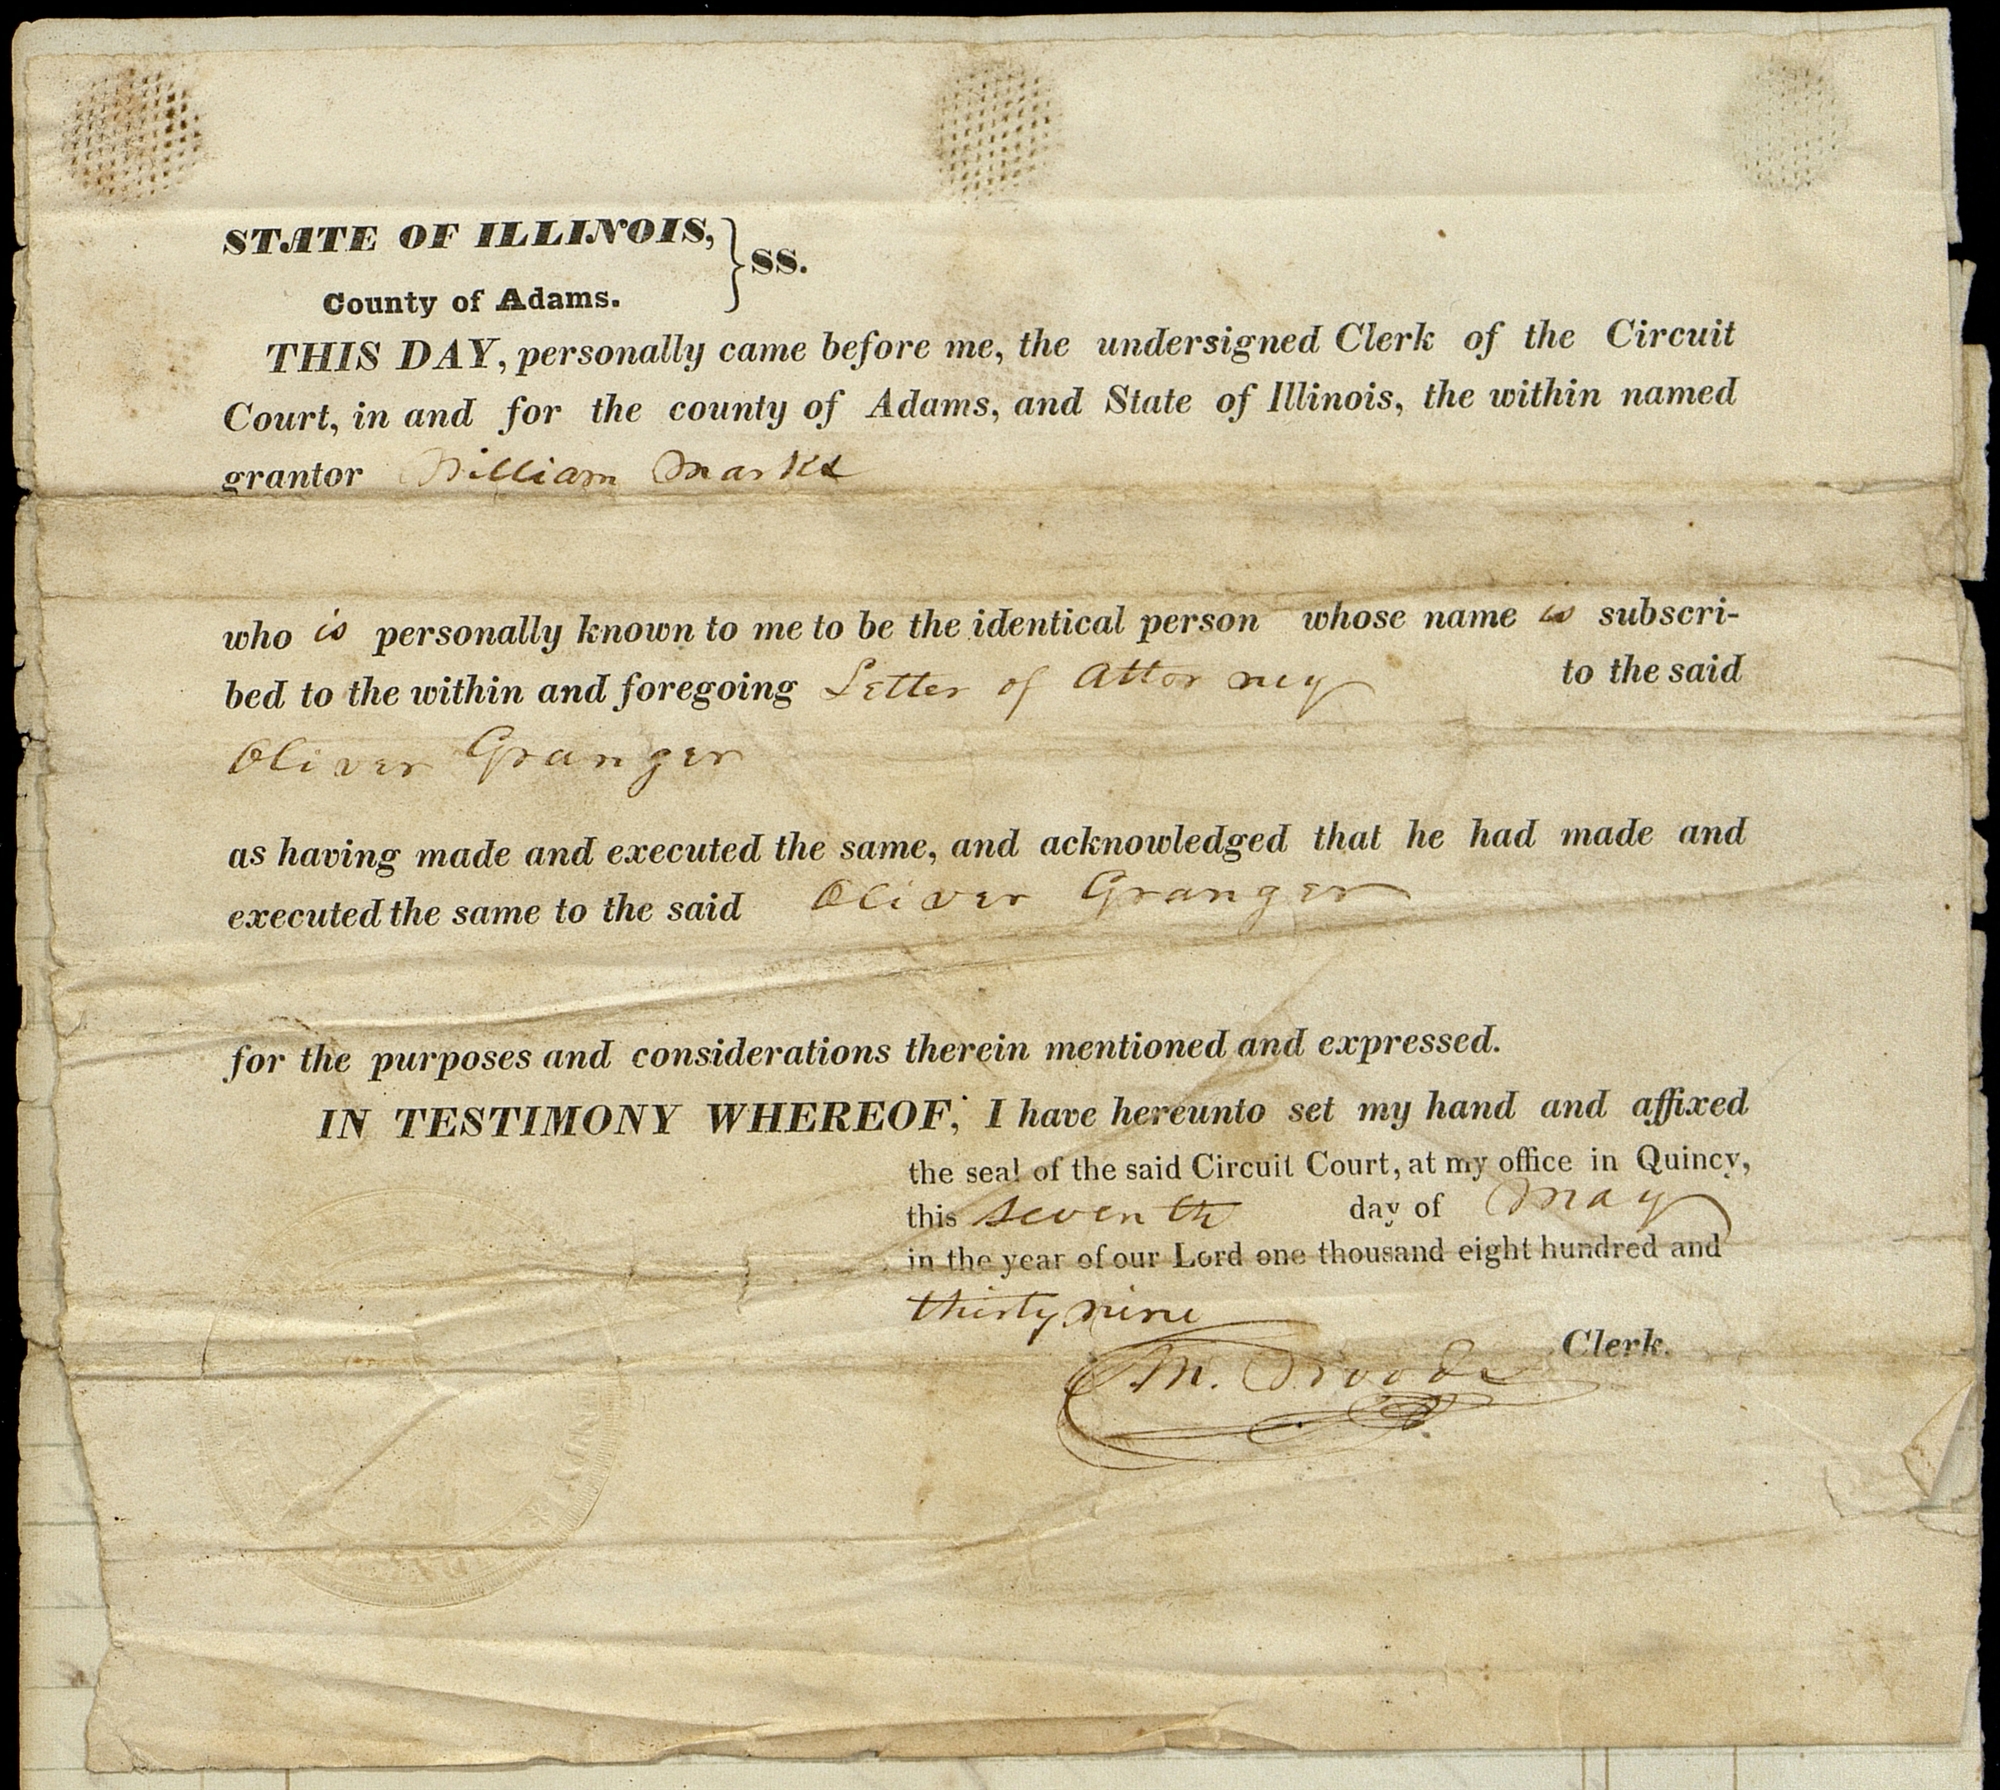 STATE OF ILLINOIS, } SS.
County of Adams.
THIS DAY, personally came before me, the undersigned Clerk of the Circuit
Court, in and for the county of Adams, and State of Illinois, the within named
grantor William Marks
who is personally known to me to be the identical person whose name is subscri-
bed to the within and foregoing Letter of Attorney to the said
Oliver Granger
as having made and executed the same, and acknowledged that he had made and
executed the same to the said Oliver Granger
for the purposes and considerations therein mentioned and expressed.
IN TESTIMONY WHEREOF, I have hereunto set my hand and affixed
the seal of the said Circuit Court, at my office in Quincy,
this seventh day of May
in the year of our Lord one thousand eight hundred and
thirty nine
Clerk.
C. M. Woods